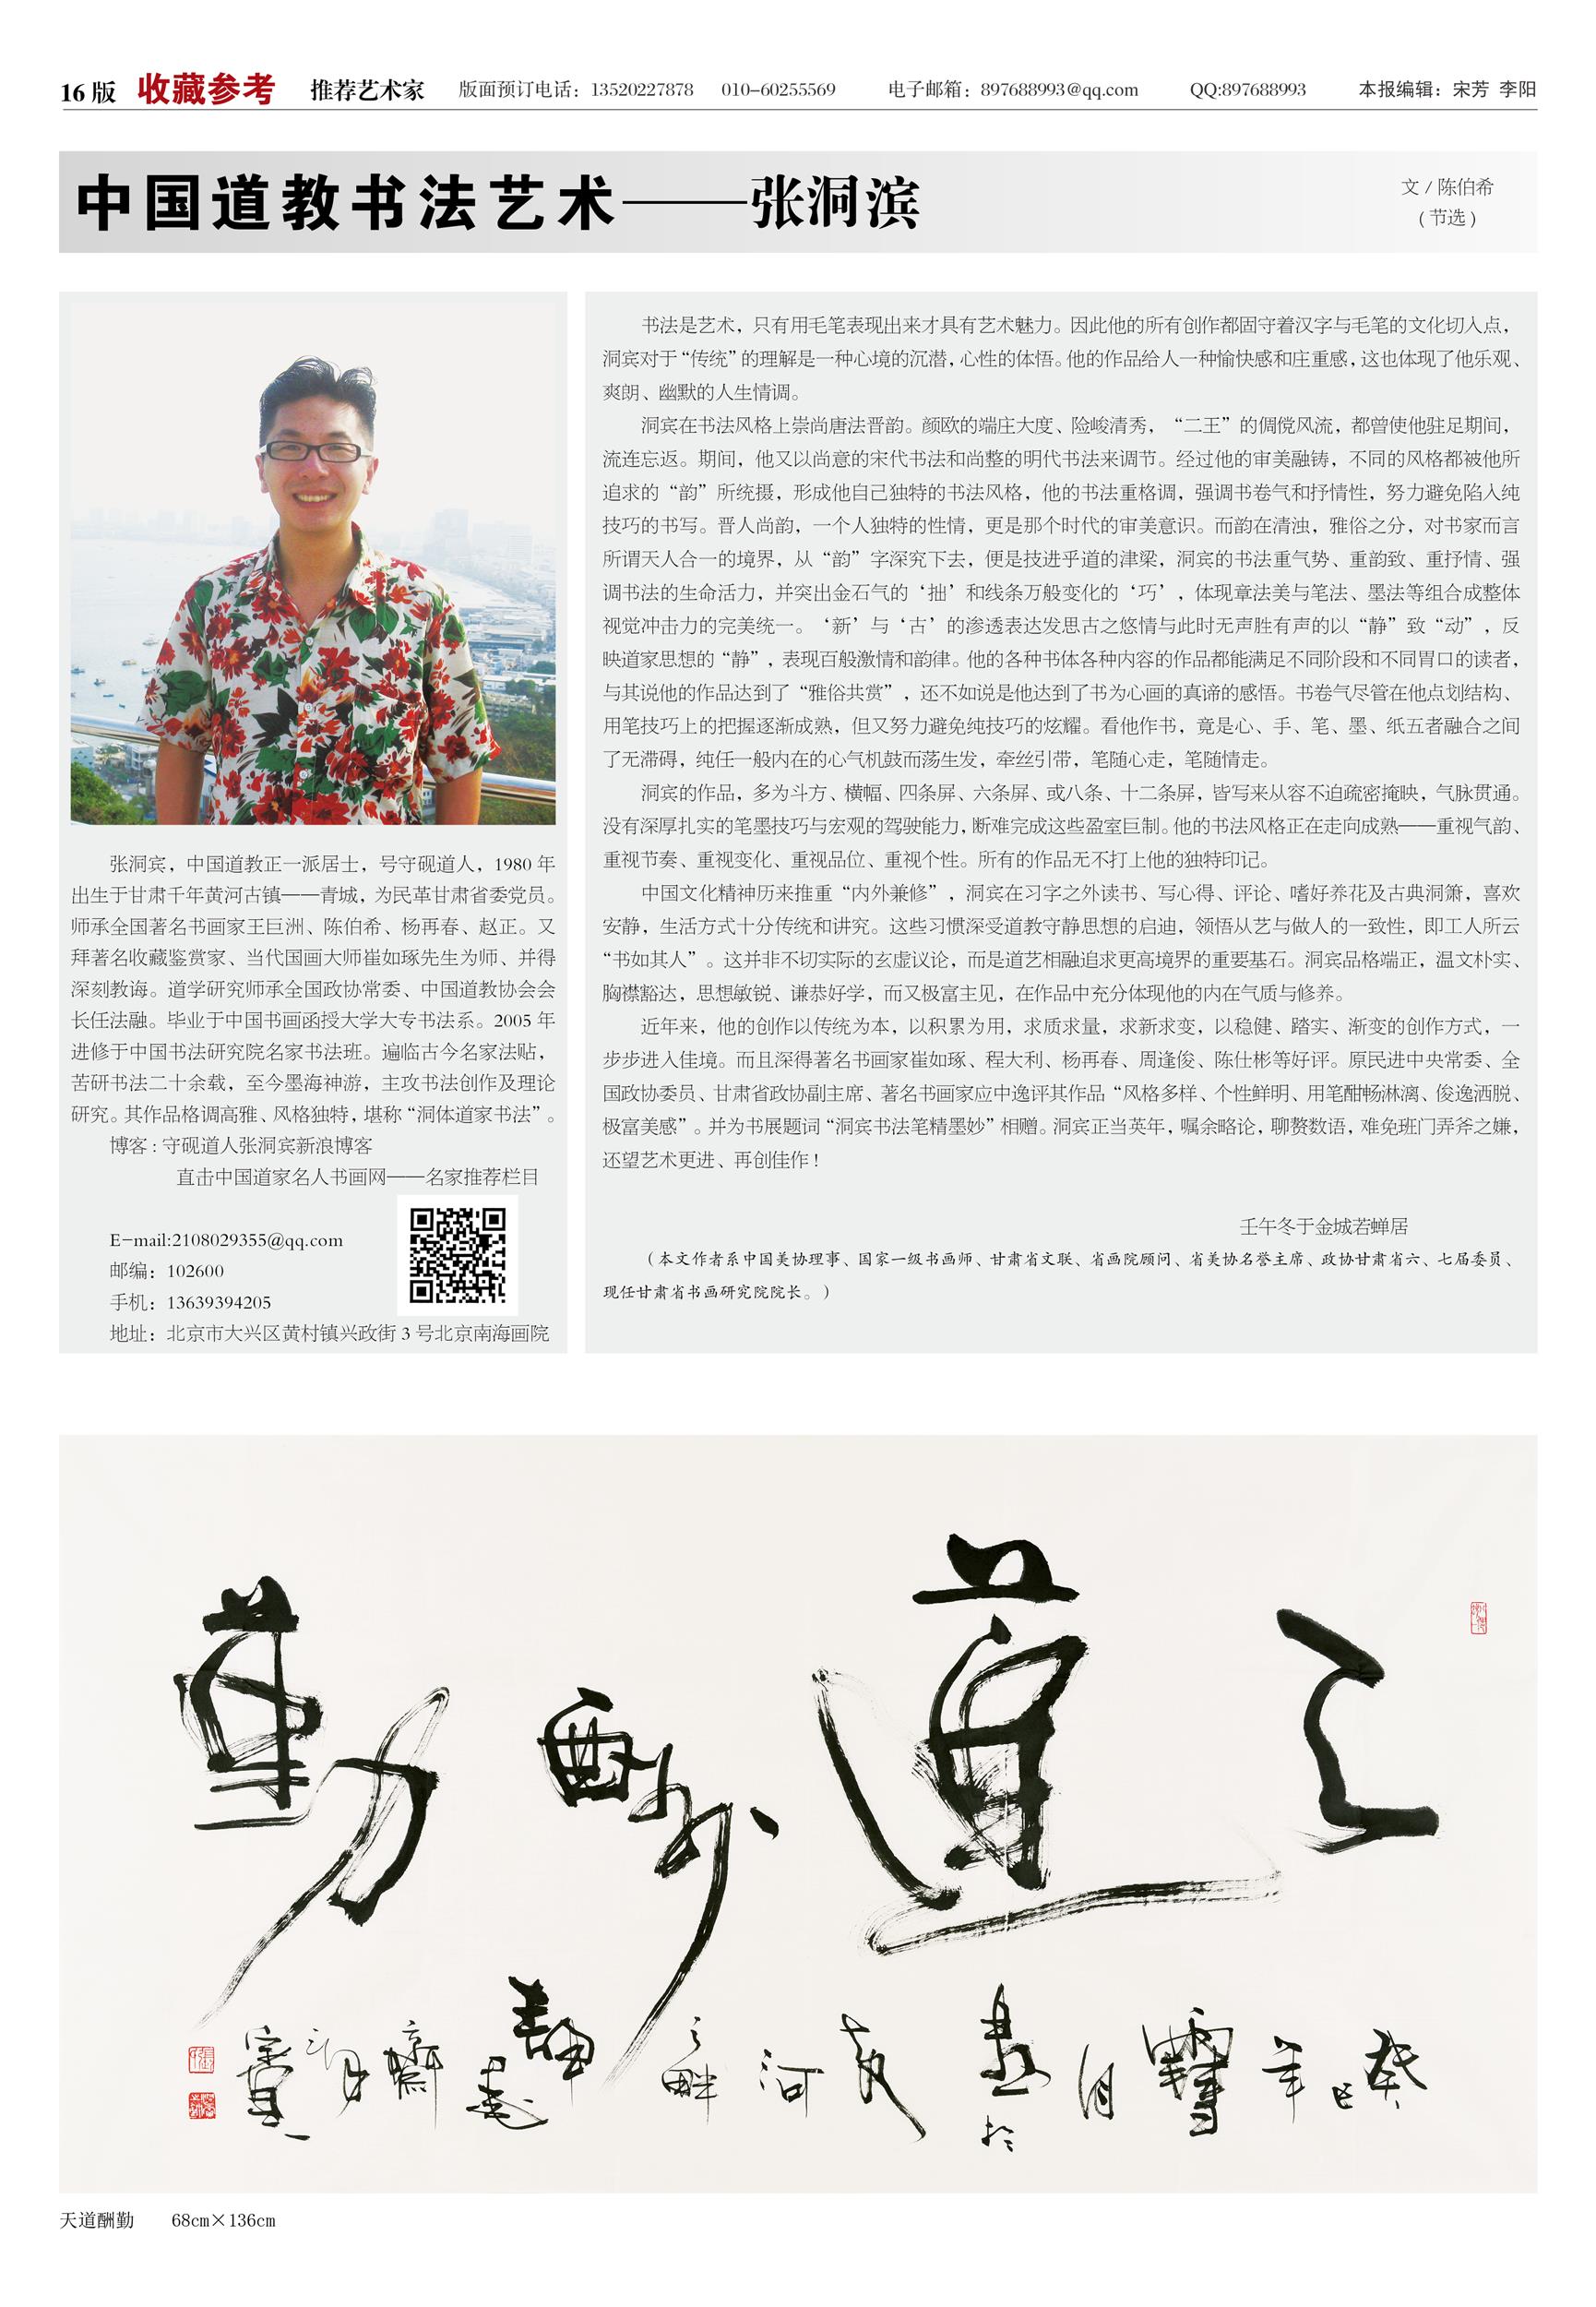 16 版 收藏参考 推荐艺术家 版面预订电话：13520227878 010-60255569 电子邮箱：897688993@qq.com QQ:897688993 本报编辑：宋芳 李阳
中国道教书法艺术——张洞滨
文 / 陈伯希
（节选）
张洞宾，中国道教正一派居士，号守砚道人，1980 年
出生于甘肃千年黄河古镇——青城，为民革甘肃省委党员。
师承全国著名书画家王巨洲、陈伯希、杨再春、赵正。又
拜著名收藏鉴赏家、当代国画大师崔如琢先生为师、并得
深刻教诲。道学研究师承全国政协常委、中国道教协会会
长任法融。毕业于中国书画函授大学大专书法系。2005 年
进修于中国书法研究院名家书法班。遍临古今名家法贴，
苦研书法二十余载，至今墨海神游，主攻书法创作及理论
研究。其作品格调高雅、风格独特，堪称“洞体道家书法”。
博客：守砚道人张洞宾新浪博客
直击中国道家名人书画网——名家推荐栏目
E-mail:2108029355@qq.com
邮编：102600
手机：13639394205
地址：北京市大兴区黄村镇兴政街 3 号北京南海画院
书法是艺术，只有用毛笔表现出来才具有艺术魅力。因此他的所有创作都固守着汉字与毛笔的文化切入点，
洞宾对于“传统”的理解是一种心境的沉潜，心性的体悟。他的作品给人一种愉快感和庄重感，这也体现了他乐观、
爽朗、幽默的人生情调。
洞宾在书法风格上崇尚唐法晋韵。颜欧的端庄大度、险峻清秀，“二王”的倜傥风流，都曾使他驻足期间，
流连忘返。期间，他又以尚意的宋代书法和尚整的明代书法来调节。经过他的审美融铸，不同的风格都被他所
追求的“韵”所统摄，形成他自己独特的书法风格，他的书法重格调，强调书卷气和抒情性，努力避免陷入纯
技巧的书写。晋人尚韵，一个人独特的性情，更是那个时代的审美意识。而韵在清浊，雅俗之分，对书家而言
所谓天人合一的境界，从“韵”字深究下去，便是技进乎道的津梁，洞宾的书法重气势、重韵致、重抒情、强
调书法的生命活力，并突出金石气的‘拙’和线条万般变化的‘巧’，体现章法美与笔法、墨法等组合成整体
视觉冲击力的完美统一。‘新’与‘古’的渗透表达发思古之悠情与此时无声胜有声的以“静”致“动”，反
映道家思想的“静”，表现百般激情和韵律。他的各种书体各种内容的作品都能满足不同阶段和不同胃口的读者，
与其说他的作品达到了“雅俗共赏”，还不如说是他达到了书为心画的真谛的感悟。书卷气尽管在他点划结构、
用笔技巧上的把握逐渐成熟，但又努力避免纯技巧的炫耀。看他作书，竟是心、手、笔、墨、纸五者融合之间
了无滞碍，纯任一般内在的心气机鼓而荡生发，牵丝引带，笔随心走，笔随情走。
洞宾的作品，多为斗方、横幅、四条屏、六条屏、或八条、十二条屏，皆写来从容不迫疏密掩映，气脉贯通。
没有深厚扎实的笔墨技巧与宏观的驾驶能力，断难完成这些盈室巨制。他的书法风格正在走向成熟——重视气韵、
重视节奏、重视变化、重视品位、重视个性。所有的作品无不打上他的独特印记。
中国文化精神历来推重“内外兼修”，洞宾在习字之外读书、写心得、评论、嗜好养花及古典洞箫，喜欢
安静，生活方式十分传统和讲究。这些习惯深受道教守静思想的启迪，领悟从艺与做人的一致性，即工人所云
“书如其人”。这并非不切实际的玄虚议论，而是道艺相融追求更高境界的重要基石。洞宾品格端正，温文朴实、
胸襟豁达，思想敏锐、谦恭好学，而又极富主见，在作品中充分体现他的内在气质与修养。
近年来，他的创作以传统为本，以积累为用，求质求量，求新求变，以稳健、踏实、渐变的创作方式，一
步步进入佳境。而且深得著名书画家崔如琢、程大利、杨再春、周逢俊、陈仕彬等好评。原民进中央常委、全
国政协委员、甘肃省政协副主席、著名书画家应中逸评其作品“风格多样、个性鲜明、用笔酣畅淋漓、俊逸洒脱、
极富美感”。并为书展题词“洞宾书法笔精墨妙”相赠。洞宾正当英年，嘱余略论，聊赘数语，难免班门弄斧之嫌，
还望艺术更进、再创佳作！
壬午冬于金城若蝉居
（本文作者系中国美协理事、国家一级书画师、甘肃省文联、省画院顾问、省美协名誉主席、政协甘肃省六、七届委员、
现任甘肃省书画研究院院长。）
天道酬勤
天道酬勤 68cm×136cm